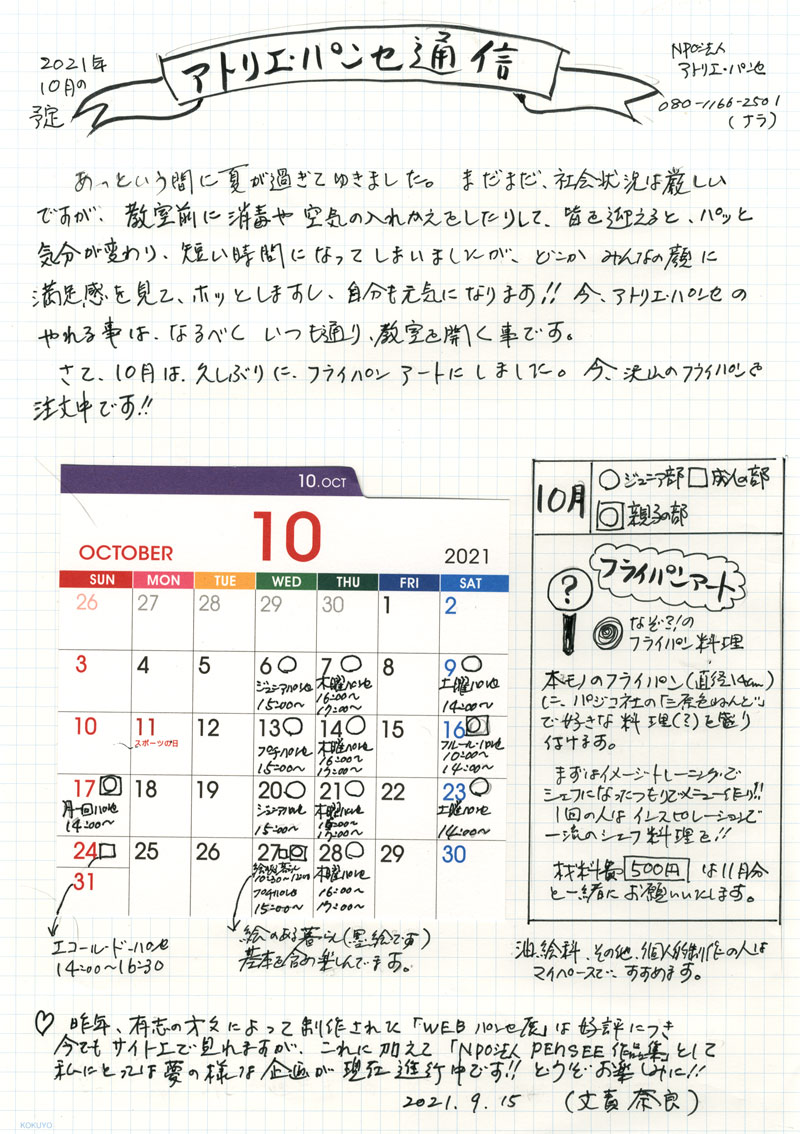 2021年
10月の
予定
アトリエ・パンセ通信
NPO法人
アトリエ・パンセ
080-1166-2501
(ナラ)
あっという間に夏が過ぎてゆきました。まだまだ、社会状況は厳しい
ですが、教室前に消毒や空気の入れかえをしたりして、皆を迎えると、パッと
気分が変わり、短い時間になってしまいましたが、どこかみんなの顔に
満足感を見て、ホッとしますし、自分も元気になります!! 今、アトリエ・パンセの
やれる事は、なるべくいつも通り、教室を開く事です。
さて、10月は、久しぶりに、フライパンアートにしました。今、沢山のフライパンを
注文中です!!
10.OCT
OCTOBER 10 2021
SUN MON TUE WED THU FRI SAT
26 27 28 29 30 1 2
3 4 5 6 7 8 9
ジュニアパンセ 15:00〜
木曜パンセ 16:00〜 17:00〜
土曜パンセ 14:00〜
10 11 12 13 14 15 16
スポーツの日
プチパンセ 15:00〜
木曜パンセ 16:00〜 17:00〜
フルール・パンセ 10:00〜 14:00〜
17 18 19 20 21 22 23
月一回パンセ 14:00〜
ジュニアパンセ 15:00〜
木曜パンセ 16:00〜 17:00〜
土曜パンセ 14:00〜
24 25 26 27 28 29 30
31
絵のある暮らし 10:30〜12:00
プチパンセ 15:00〜
木曜パンセ 16:00〜 17:00〜
エコール・ド・パンセ
14:00〜16:30
絵のある暮らし(墨絵です)
基本を含め楽しんでます。
10月
ジュニア部 成人の部
親子の部
フライパンアート
?
なぞ?!の
フライパン料理
本モノのフライパン(直径14cm)
に、パジコ社の「三原色ねんど」
で好きな料理(?)を盛り
付けます。
まずはイメージ・トレーニングで
シェフになったつもりでメニュー作り!!
1回の人はインスピレーションで
一流のシェフ料理を!!
材料費500円は11月分
と一緒にお願いいたします。
油絵科、その他、個人的制作の人は
マイペースで、すすめます。
♡ 昨年、有志の方々によって制作された「WEBパンセ展」は好評につき
今でもサイト上で見れますが、これに加えて「NPO法人PENSEE作品集」として
私にとっては夢の様な企画が現在進行中です!! どうぞお楽しみに!!
2021.9.15 (文責 奈良)
KOKUYO